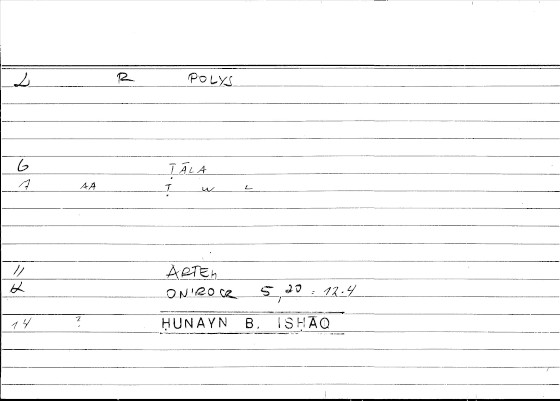 2 R POLYS
6 ṬĀLA
7 AA Ṭ W L
11 ARTEM
12 ONIROCR 5,20 = 12.4
14 ? ḤUNAYN B. ISḤĀQ